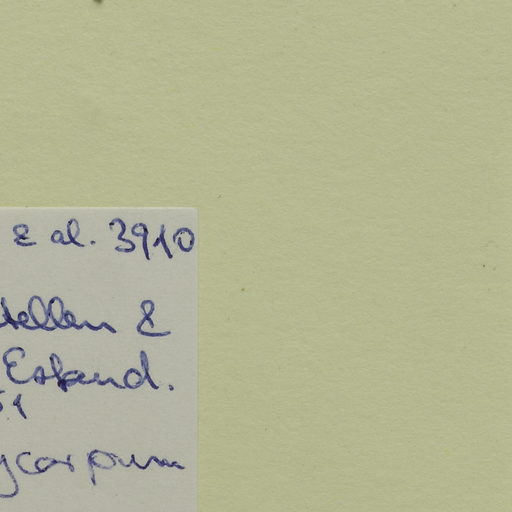 & al. 3910
tellen &
Esfand.
51
ycarpum